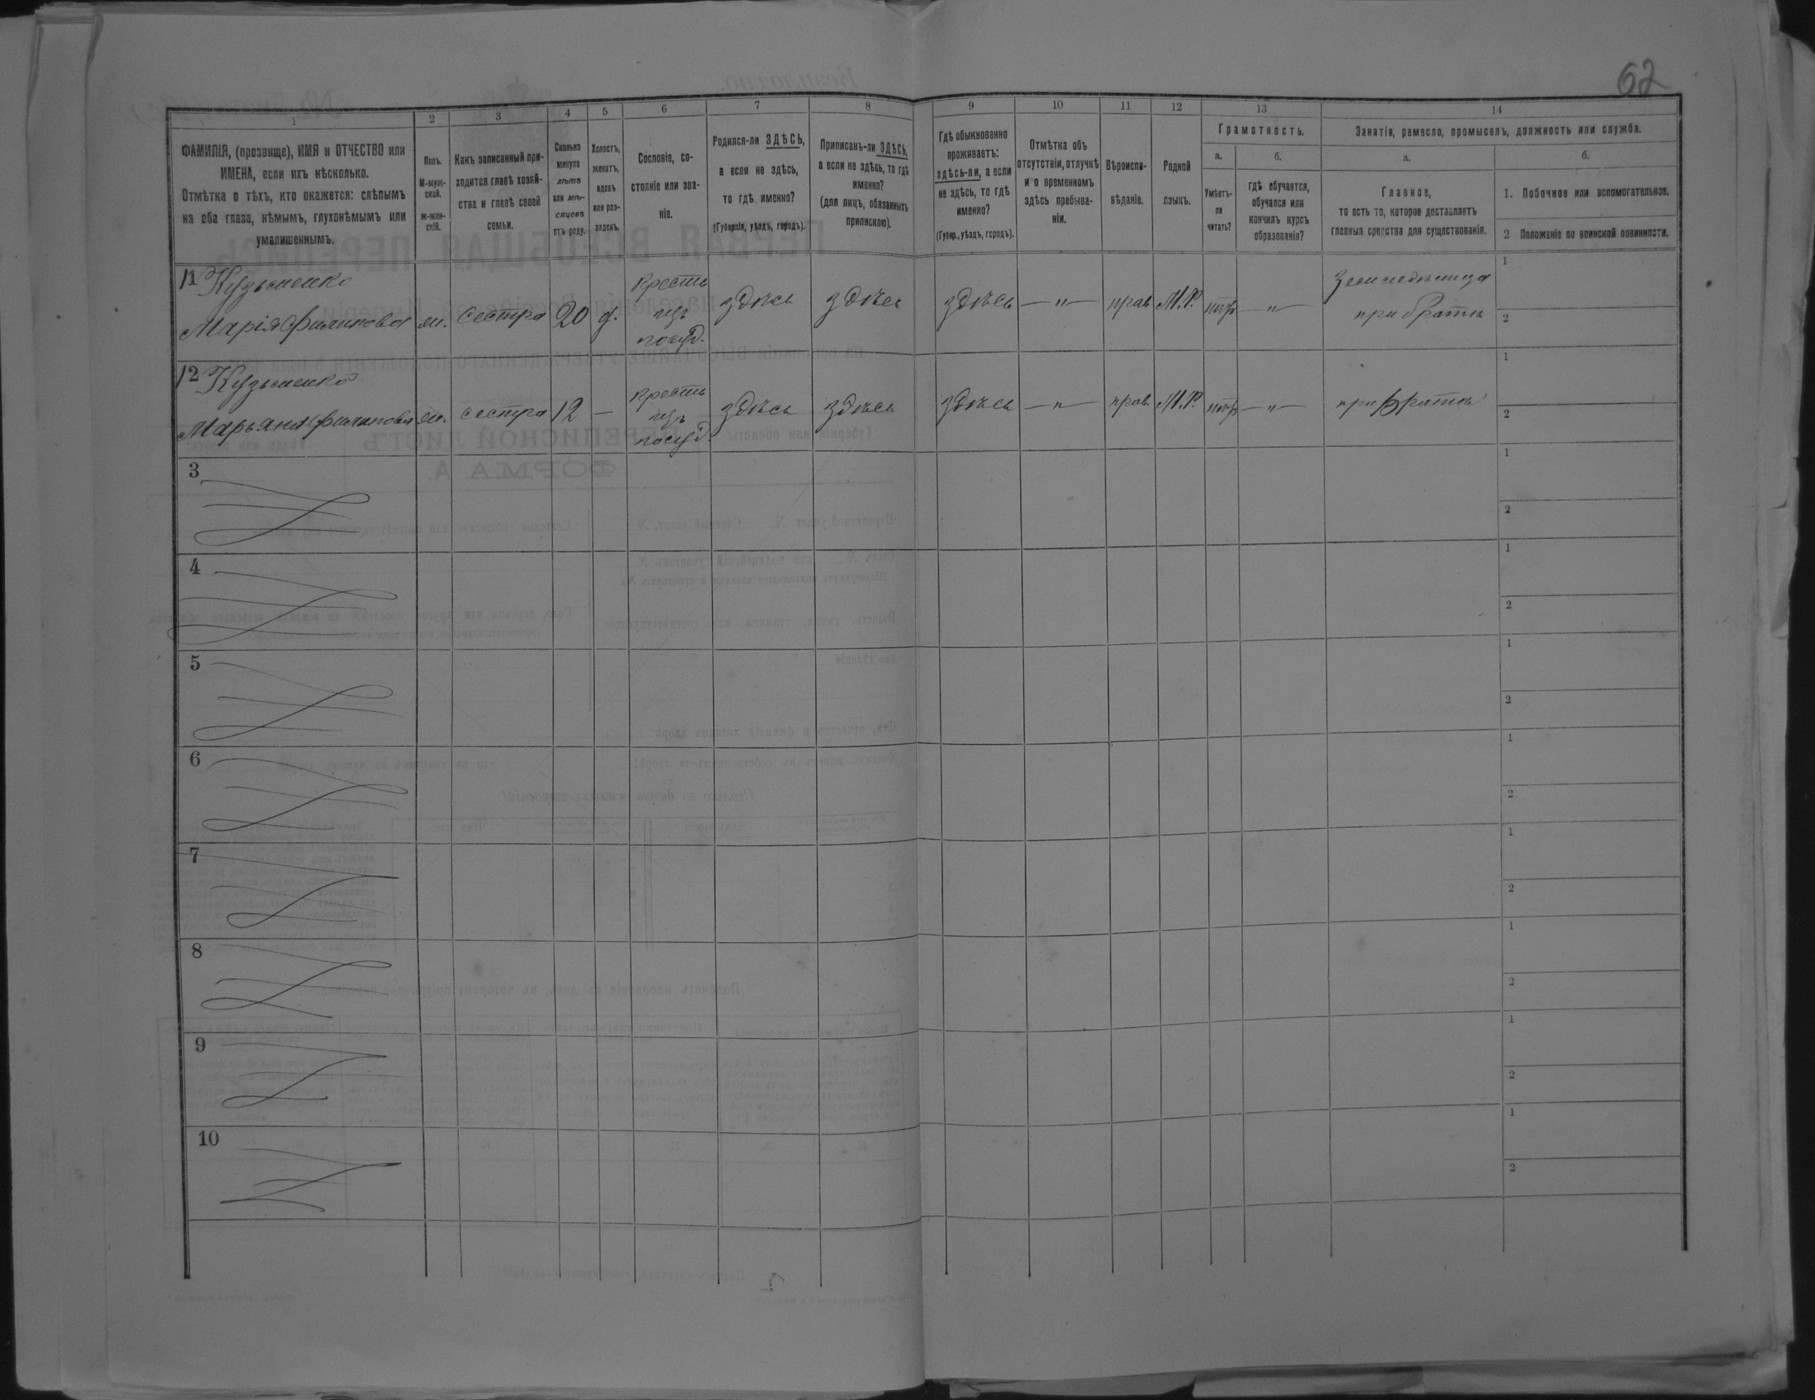 62
1
2
3
4
5
6
7
8
9
10
11
12
13
14
ФАМИЛІЯ, (прозвище), ИМЯ и ОТЧЕСТВО или
ИМЕНА, если ихъ нѣсколько.
Отмѣтка о тѣхъ, кто окажется: слѣпымъ
на оба глаза, нѣмымъ, глухонѣмымъ или
умалишеннымъ.
Полъ.
М-муж-
ской.
Ж-жен-
скій.
Какъ записанный при-
ходится главѣ хозяй-
ства и главѣ своей
семьи.
Сколько
минуло
лѣтъ
или мѣ-
сяцевъ
отъ роду.
Холостъ,
женатъ,
вдовъ
или раз-
веденъ.
Сословіе, со-
стояніе или зва-
ніе.
Родился-ли ЗДѢСЬ,
а если не здѣсь,
то гдѣ именно?
(Губернія, уѣздъ, городъ).
Приписанъ-ли ЗДѢСЬ,
а если не здѣсь, то гдѣ
именно?
(для лицъ, обязанныхъ
припискою).
Гдѣ обыкновенно
проживаетъ:
здѣсь-ли, а если
не здѣсь, то гдѣ
именно?
(Губер., уѣздъ, городъ).
Отмѣтка объ
отсутствіи, отлучкѣ
и о временномъ
здѣсь пребыва-
ніи.
Вѣроиспо-
вѣданіе.
Родной
языкъ.
Грамотность.
а.
Умѣетъ-
ли
читать?
б.
гдѣ обучается,
обучался или
кончилъ курсъ
образованія?
Занятія, ремесло, промыселъ, должность или служба.
а.
Главное,
то есть то, которое доставляетъ
главныя средства для существованія.
б.
1. Побочное или вспомогательное.
2 Положеніе по воинской повинности.
11 Кузьменко
Марія Филипова ж. сестра 20 д. крестья изъ госуд. здѣсь здѣсь здѣсь — „ — прав М.Р. нѣтъ — „ — земледѣлица при братѣ
1
2
12 Кузьменко
Марьяна Филипова ж. сестра 12 — крестья изъ госуд. здѣсь здѣсь здѣсь — „ — прав М.Р. нѣтъ — „ — при братѣ
1
2
3
1
2
4
1
2
5
1
2
6
1
2
7
1
2
8
1
2
9
1
2
10
1
2